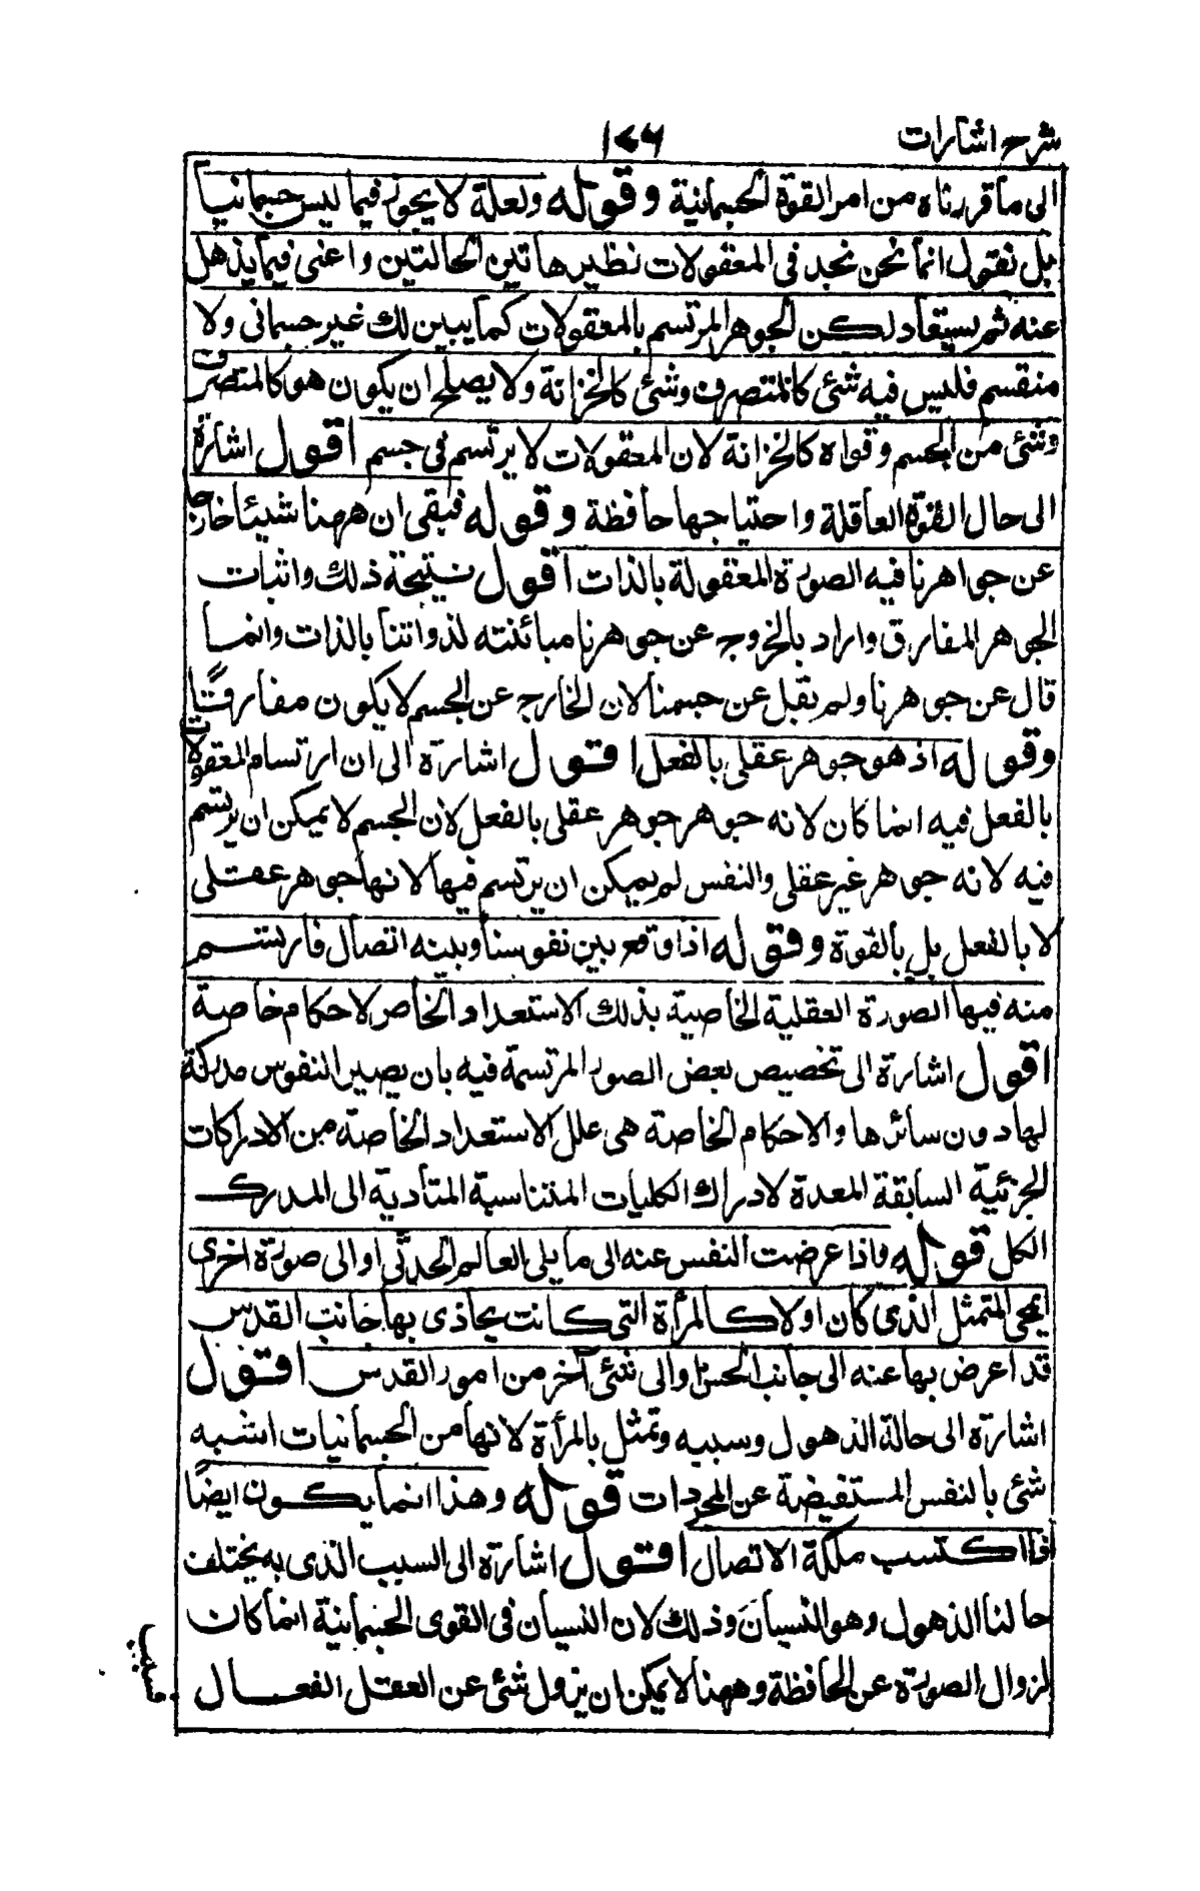 شرح اشارات ١٧٦
الى ما قررناه من امر القوة الجسمانية وقوله ولعلة لا يجوز فيما ليس جسمانيا
بل نقول انما نحن نجد فى المعقولات نظير هاتين الحالتين واعنى فيما يذهل
عنه ثم يستعاد لكن الجوهر المرتسم بالمعقولات كما يبين لك غير جسمانى ولا
منقسم فليس فيه شئ كالمتصرف وشئ كالخزانة ولا يصلح ان يكون هو كالمتصرف
وشئ من الجسم وقواه كالخزانة لان المعقولات لا يرتسم فى جسم اقول اشارة
الى حال القوة العاقلة واحتياجها حافظة وقوله فبقى ان ههنا شيئا خارجا
عن جواهرنا فيه الصورة المعقولة بالذات اقول نتيجة ذلك واثبات
الجوهر المفارق واراد بالخروج عن جوهرنا مبائنته لذواتنا بالذات وانما
قال عن جوهرنا ولم يقل عن جسمنا لان الخارج عن الجسم لا يكون مفارقًا
وقوله اذ هو جوهر عقلى بالفعل اقول اشارة الى ان ارتسام المعقولات
بالفعل فيه انما كان لانه جوهر جوهر عقلى بالفعل لان الجسم لا يمكن ان يرتسم
فيه لانه جوهر غير عقلى والنفس لم يمكن ان يرتسم فيها لانها جوهر عقلى
لا بالفعل بل بالقوة وقوله اذا وقع بين نفوسنا وبينه اتصال فارتسم
منه فيها الصورة العقلية الخاصية بذلك الاستعداد الخاص لاحكام خاصة
اقول اشارة الى تخصيص بعض الصور المرتسمة فيه بان يصير النفوس مدركة
لها دون سائرها والاحكام الخاصة هى علل الاستعداد الخاصة من الادراكات
الجزئية السابقة المعدة لادراك الكليات المتناسبة المتأدية الى المدرك
الكل قوله واذا عرضت النفس عنه الى ما يلى العالم الحدثى او الى صورة اخرى
انمحى المتمثل الذى كان اولا كالمرأة التى كانت يحاذى بها جانب القدس
قد اعرض بها عنه الى جانب الحس او الى شئ آخر من امور القدس اقول
اشارة الى حالة الذهول وسببه وتمثل بالمرأة لانها من الجسمانيات اشبه
شئ بالنفس المستفيضة عن المجردات قوله وهذا انما يكون ايضًا
اذا اكتسب ملكة الاتصال اقول اشارة الى السبب الذى به يختلف
حالنا الذهول وهو النسيان وذلك لان النسيان فى القوى الجسمانية انما كان
لزوال الصورة عن الحافظة وههنا لا يمكن ان يزول شئ عن العقل الفعال